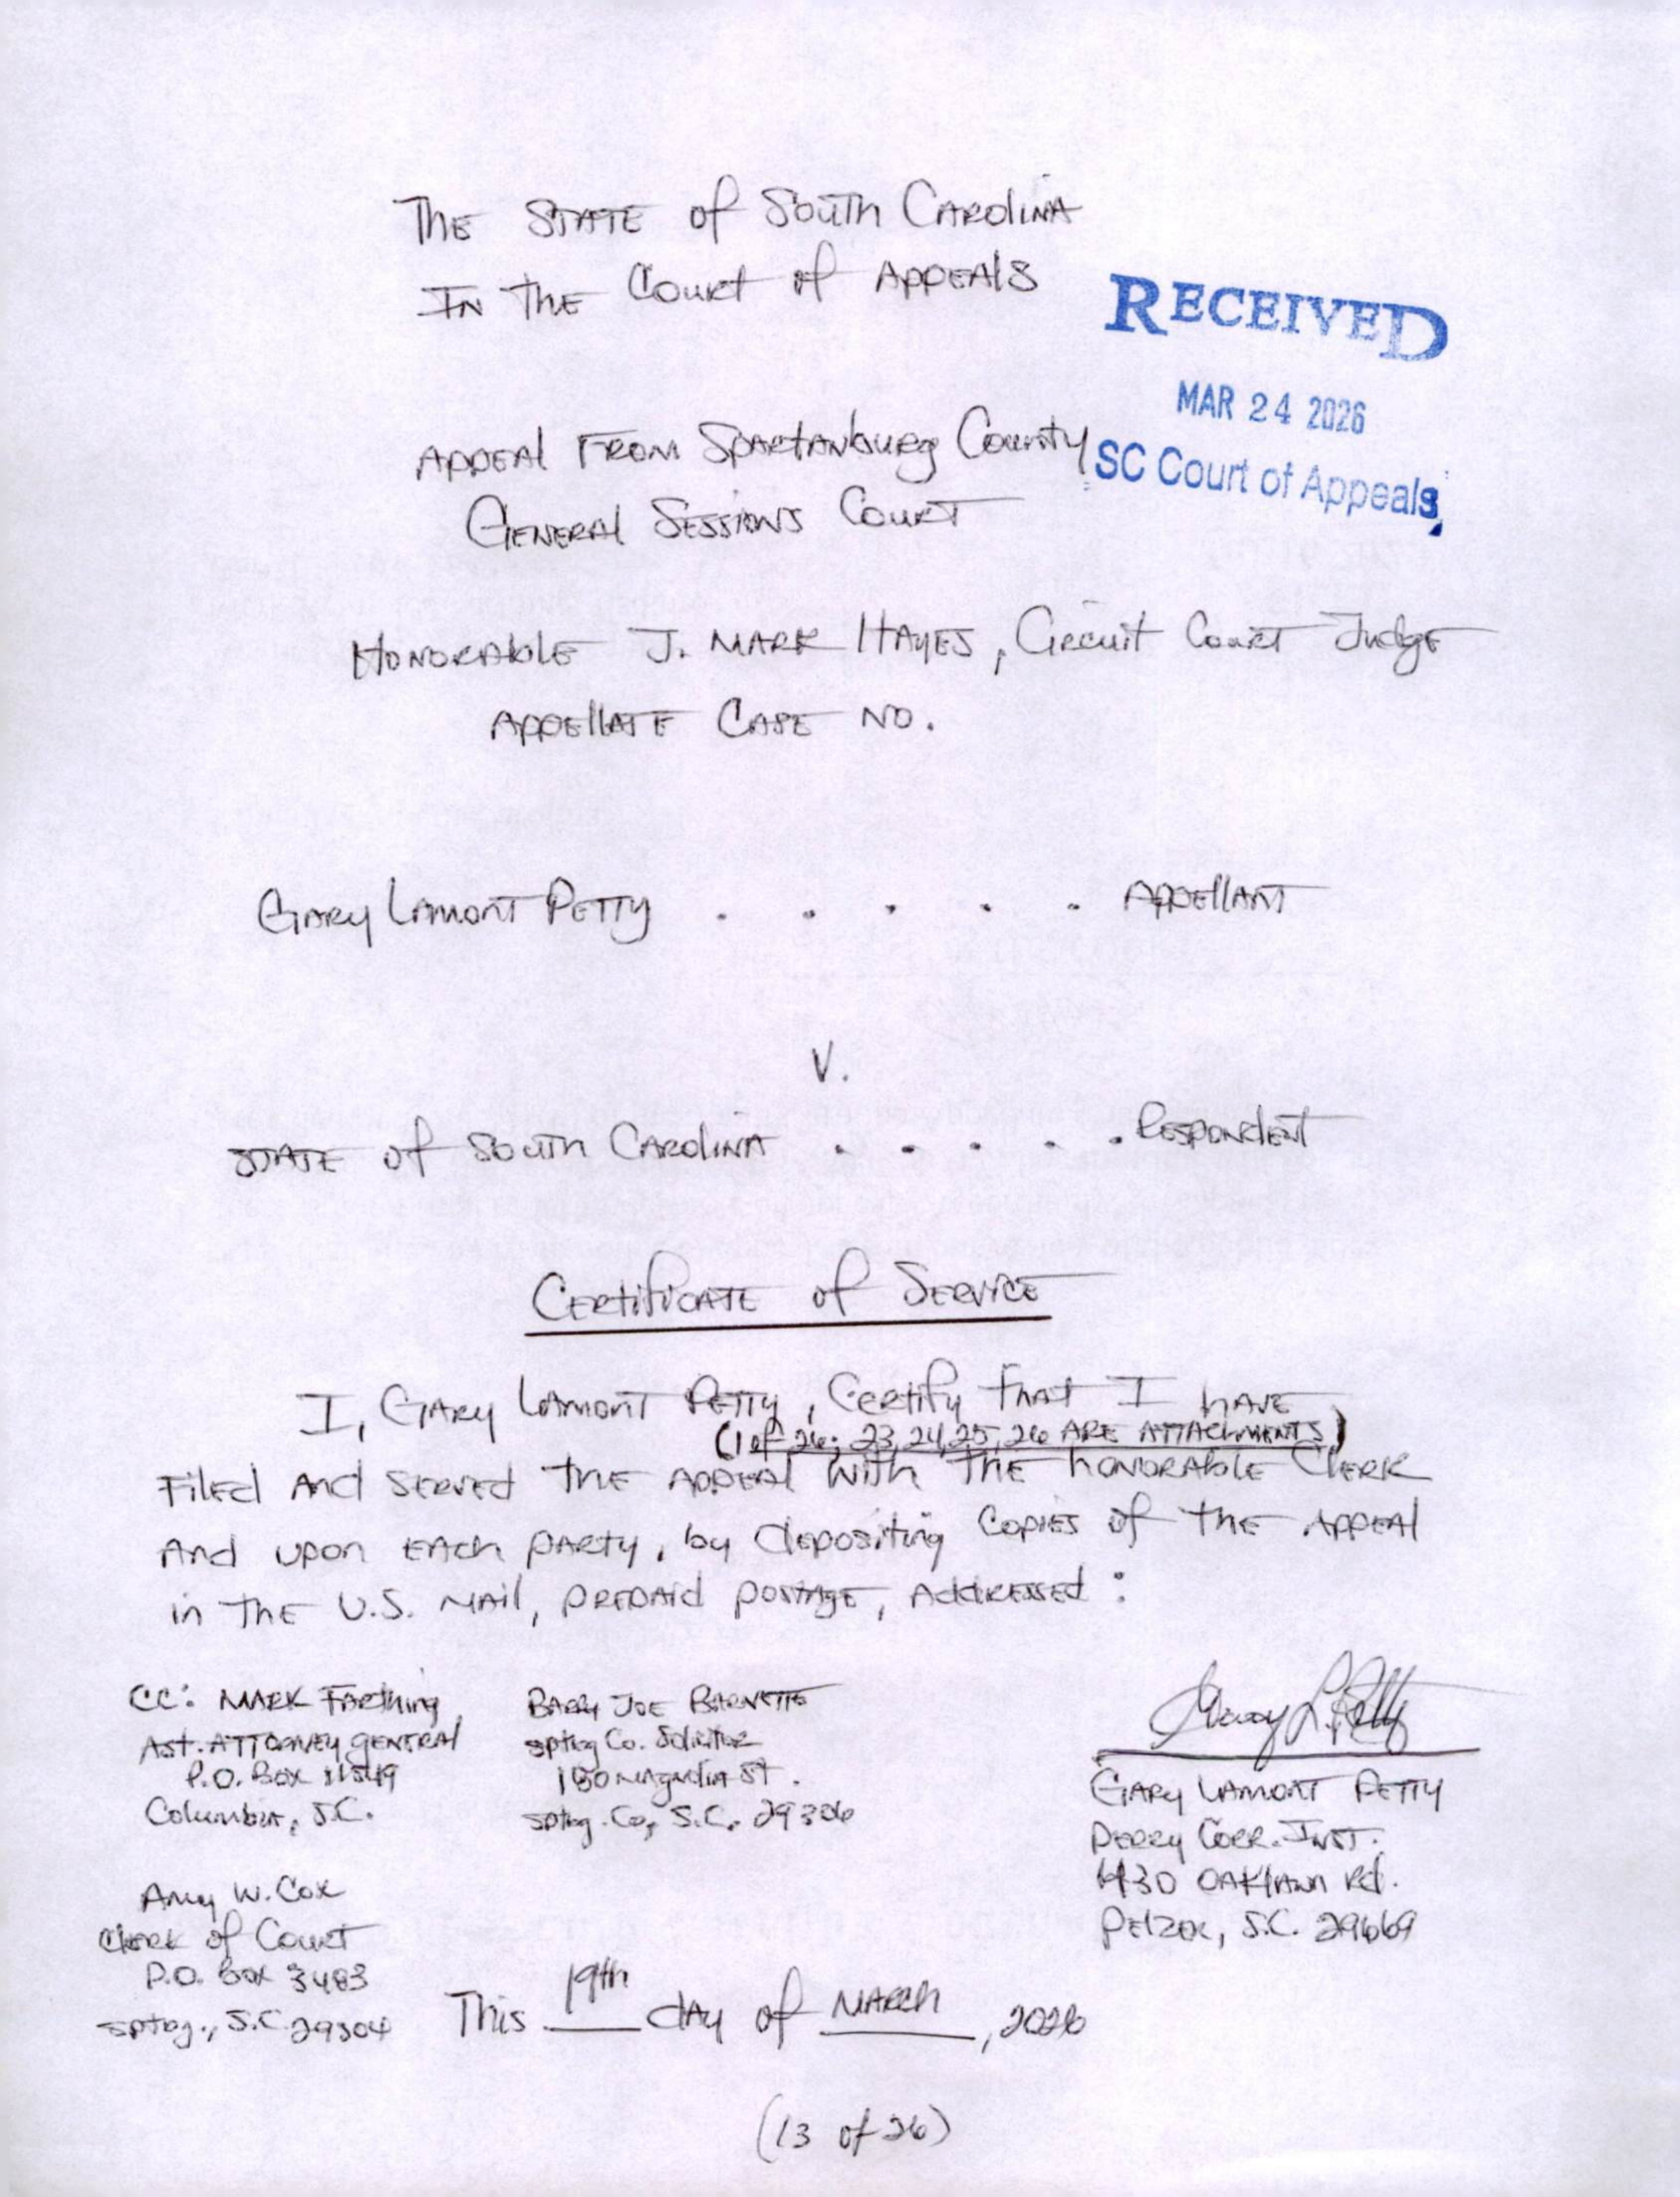 The State of South Carolina
In the Court of Appeals
RECEIVED
MAR 24 2026
SC Court of Appeals
Appeal From Spartanburg County
General Sessions Court
Honorable J. Mark Hayes, Circuit Court Judge
Appellate Case No.
Gary Lamont Petty . . . . . Appellant
V.
State of South Carolina . . . . . Respondent
Certificate of Service
I, Gary Lamont Petty, Certify that I have
(1 of 26; 23, 24, 25, 26 are attachments)
Filed and served the appeal with the honorable Clerk
and upon each party, by depositing copies of the appeal
in the U.S. Mail, prepaid postage, addressed:
CC: Mark Farthing
Ast. Attorney General
P.O. Box 11549
Columbia, S.C.
Barry Joe Barnette
Sptbg Co. Solicitor
180 Magnolia St.
Sptbg. Co, S.C. 29306
Gary L. Petty
Gary Lamont Petty
Perry Corr. Inst.
430 Oaklawn Rd.
Pelzer, S.C. 29669
Amy W. Cox
Clerk of Court
P.O. Box 3483
Sptbg., S.C. 29304
This 19th day of March, 2026
(13 of 26)